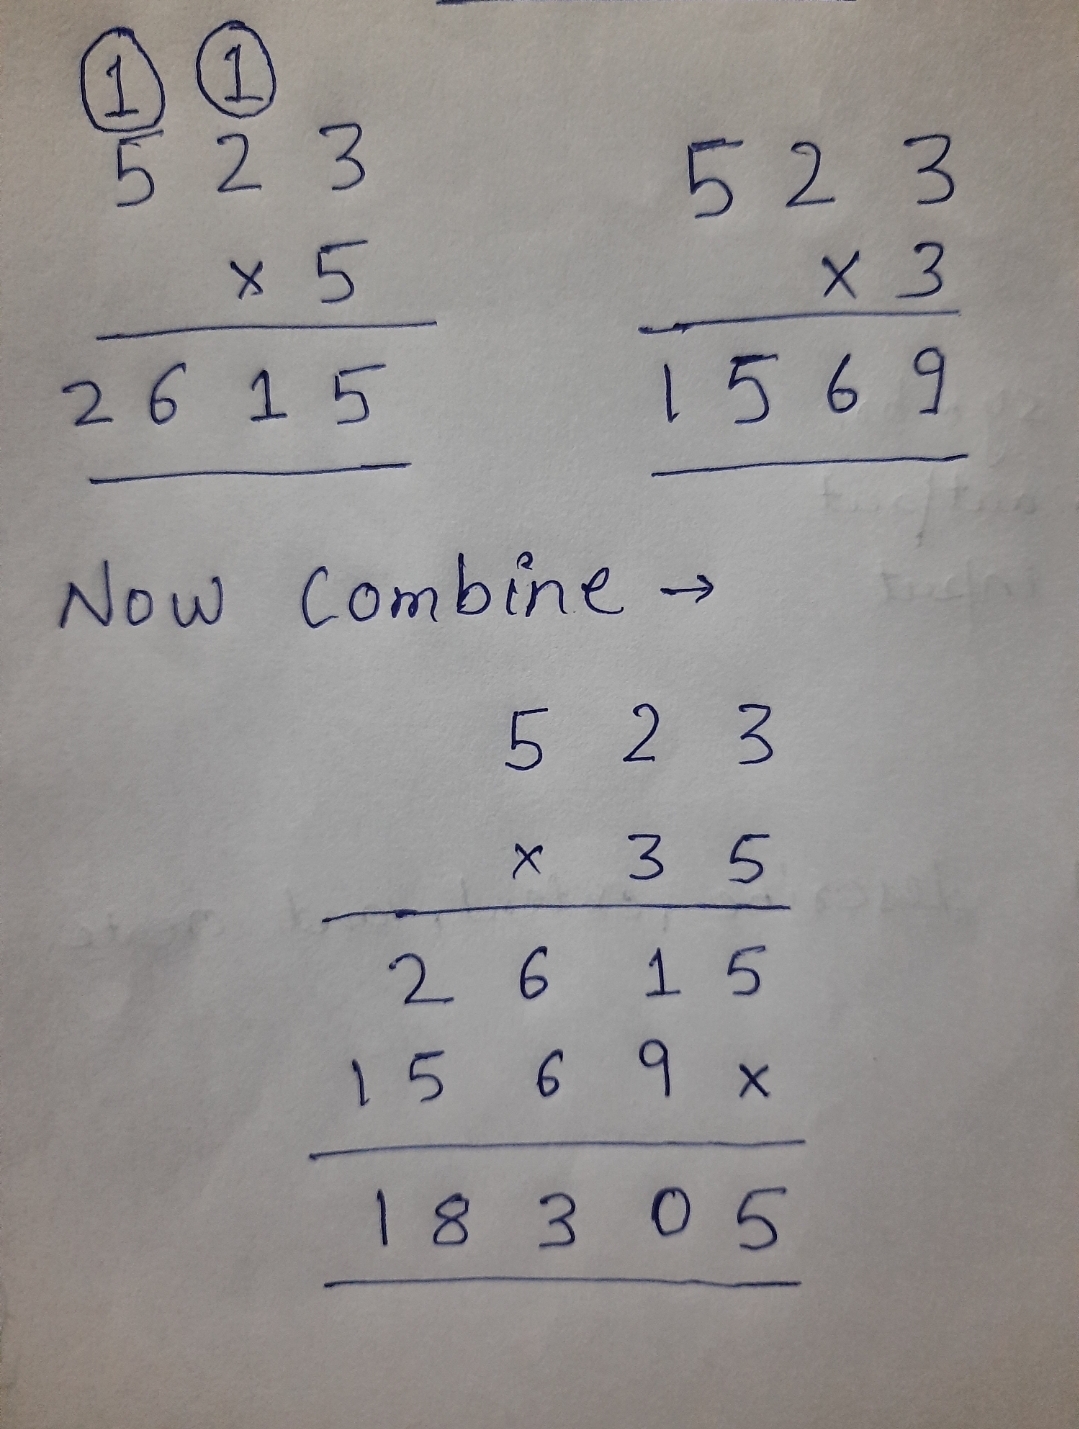 1 1
5 2 3
x 5
2 6 1 5
5 2 3
x 3
1 5 6 9
Now Combine →
5 2 3
x 3 5
2 6 1 5
1 5 6 9 x
1 8 3 0 5